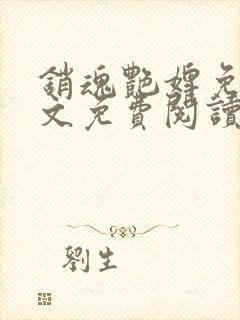 銷魂艷婢免
文免費閱讀
劉生